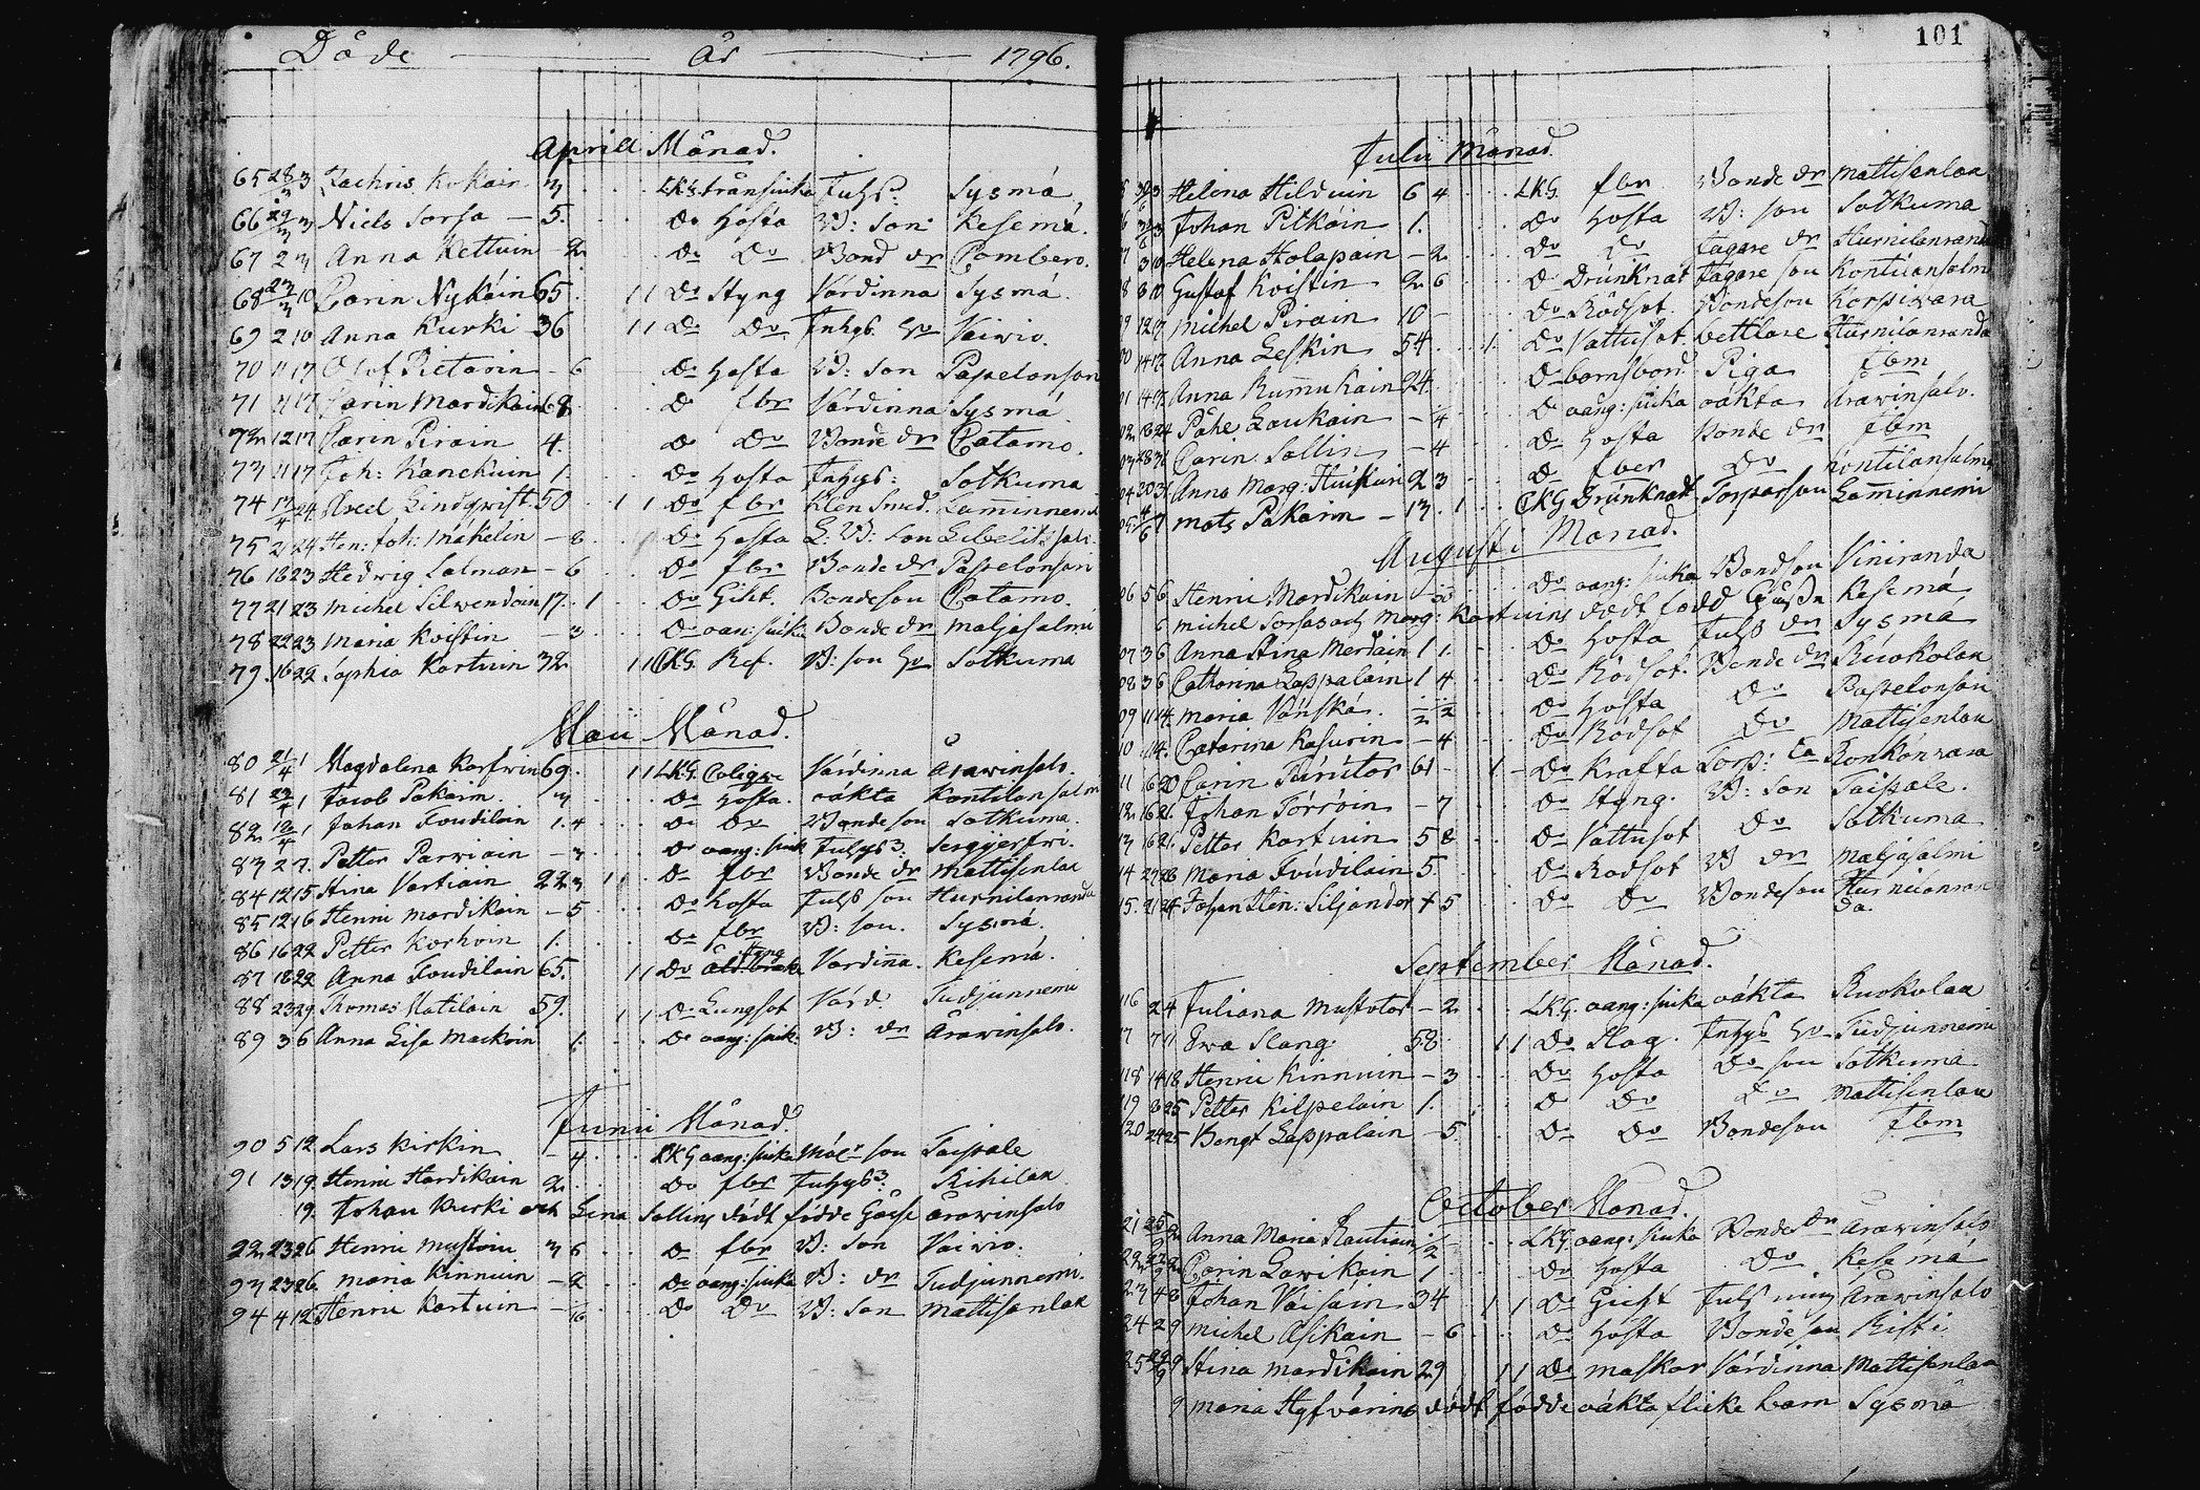 Döde år 1796.
Aprill Månad.
65 28/3 3 Zachris Kokain 3 LKG. trånsiuka Inhs: Sysmä
66 29/3 3 Niels Sorsa - 5. Do Hosta B: son Kesemä.
67 2 3 Anna Kettuin - 2 Do Do Bond dr Pombero.
68 23/3 10 Carin Nykäin 65. 1 1 Do Styng Värdinna Sysmä.
69 2 10 Anna Kurki 36 1 1 Do Do Inhys. Hu Vaivio.
70 11 17 Olof Pietarin - 6 Do Hosta B: son Papelonsari
71 11 17 Carin Mardikain 68 Do fbr Värdinna Sysmä
72 12 17 Carin Pirain 4. Do Do Bonde dr Catamo.
73 11 17 Joh: Kanckuin 1. Do Hosta Inhys: Sotkuma
74 17/4 24 Axel Lindqvist 50 1 1 Do fbr Klensmed. Laminnemi
75 2/ 24 Hen: Joh: Mäkelin - 8 Do Hosta L: B: son Libelits
76 18 23 Hedwig Salman - 6 Do fbr Bonde dr Papelonsari
77 21 23 Michel Silwendoin 17. 1 Do Gikt. Bondeson Catamo.
78 22 23 Maria Koistin - 3 Do oan: siuka Bonde dr Maljasalmi
79. 16 22 Sophia Kortuin 32 1 1 CKG. Ref. B: son Hu Sotkuma
Maii Månad.
80 21/4 1 Magdalena Korfwin 69. 1 1 LKG. Colique Värdinna Arawinsalo.
81 29/4 1 Jacob Pakarin. 3 Do Hosta. oäkta Kontilansalm
82 12/4 1 Johan Toudilain 1. 4 Do Do Bondeson Sotkuma.
83 2 7. Petter Parwiain - 3 Do oang: siuk Inhys: Sergijerfwi.
84 12 15 Stina Vartiain 22 3 1 Do fbr Bonde dr Mattisenlax
85 12 16 Henric Mardikain - 5 Do Hosta Inhs son Hurnilanranda
86 16 22 Petter Korhoin 1. Do fbr B: son. Sysmä.
87 18 22 Anna Toudilain 65. 1 1 Do Styng Värdinna. Kesemä.
88 23 29. Thomas Matilain 59. 1 1 Do Lungsot Värd. Tudjunnemi
89 3 6 Anna Lisa Mackoin 1. Do oang: siuk. B: dr Arawinsalo.
Junii Månad.
90 5 12 Lars Kirkin - 4 LKG oang: siuka Mölr son Taipale
91 13 19. Henric Hardikain 2 Do fbr Inhys: Rihilax
19. Johan Kurki och Lena Sallins dödt födde Gåsse Arawinsalo
22 23 26 Henric Mustoin 3 6 Do fbr B: son Vaivio.
93 23 26. Maria Kinnuin - 2 Do oang: siuka B: dr Tudjunnemi.
94 4 12 Henric Kortuin - Do Do B: son Mattisenlax
101
Julii Månad.
Helena Hilduin 6 4 LKG. fbr Bonde dr Mattisenlax
Johan Pitkäin 1. Do Hosta B: son Sotkuma
3 10 Helena Holapain - 2 Do Do Tagare dr Hurnilanranda
8 10 Gustaf Koistin 2 6 Do Drunknat Tagare son Kontilansalmi
12 17 Michel Pirain 10 - Do Rödsot. Bondeson Korpivara
14 17. Anna Leskin 54. 1. Do Vattusot. bettlare Hurnilanranda
14 17. Anna Rummukain 24. Do barnsbörd. Piga Ibm
18 24 Påhl Laukain - 4 Do oang: siuka oäkta Arawinsalo.
28 31 Carin Sallin - 4 Do Hosta Bonde dr Ibm
20 31 Anna Marg: Huiskuin 2 3 Do fber Do Kontilansalmi
Mats Pakarin - 13. 1 CKG Drunknadt Torparson Laminnemi
Augusti Månad.
06 5 6 Henric Mardikain Do oang: siuka Bondson Viniranda
6 Michel Sorsas och Marg: Kortuins dödt född Gåsse Kesemä
07 3 6 Anna Stina Merdain 1 1. Do Hosta Inhs dr Sysmä
08 3 6 Catharina Lappalain 1 4 Do Rödsot. Bonde dr Ruokolax
09 11 14. Maria Vänskä. 2/2 Do Hosta Do Papelonsari
10 14. Catarina Kasurin - 4 Do Rödsot Do Mattisenlax
11 16 20 Carin Purutar 61 1 - Do Krafta Torp: Ea Konkanvara
12 16 21. Johan Törröin - 7 Do Styng. B: son Taipale.
13 16 21. Petter Kortuin 5 8 Do Vattusot Do Sotkuma
14 27 28 Maria Toudilain 5. Do Rodsot B dr Maljasalmi
15. 21 24 Johan Hen: Siljander + 5 Do Do Bondeson Hurnilanranda.
September Månad.
116 2 4 Juliana Mustotar - 2 LKG. oang: siuka oäkta Ruokolax
7 7 11 Ewa Slang. 58 1 1 Do Slag. Inhys Hu Tudjunnemi
118 14 18 Henric Kinnuin - 3 Do Hosta Do son Sotkuma
119 8 25 Petter Kilpelain 1. Do Do Do Mattisenlax
120 24 25 Bengt Lappalain - 5. Do Do Bondeson Ibm
October Månad.
21 25/9 2 Anna Maria Rautiain 1/2 LKG. oang: siuka Bonde dr Arawinsalo
Carin Lawikain 1 Do Hosta Do Kesemä
23 4 8 Johan Väisäin 34 1 1 Do Gicht Inhs Arawinsalo
24 2 9 Michel Asikain - 6 Do Hosta Bondeson Risti
25 29/9 9 Stina Mardikain 29 1 1 Do Maskar Värdinna Mattisenlax
9 Maria Hyfvärins dödt födde oäkta flicke barn Sysmä